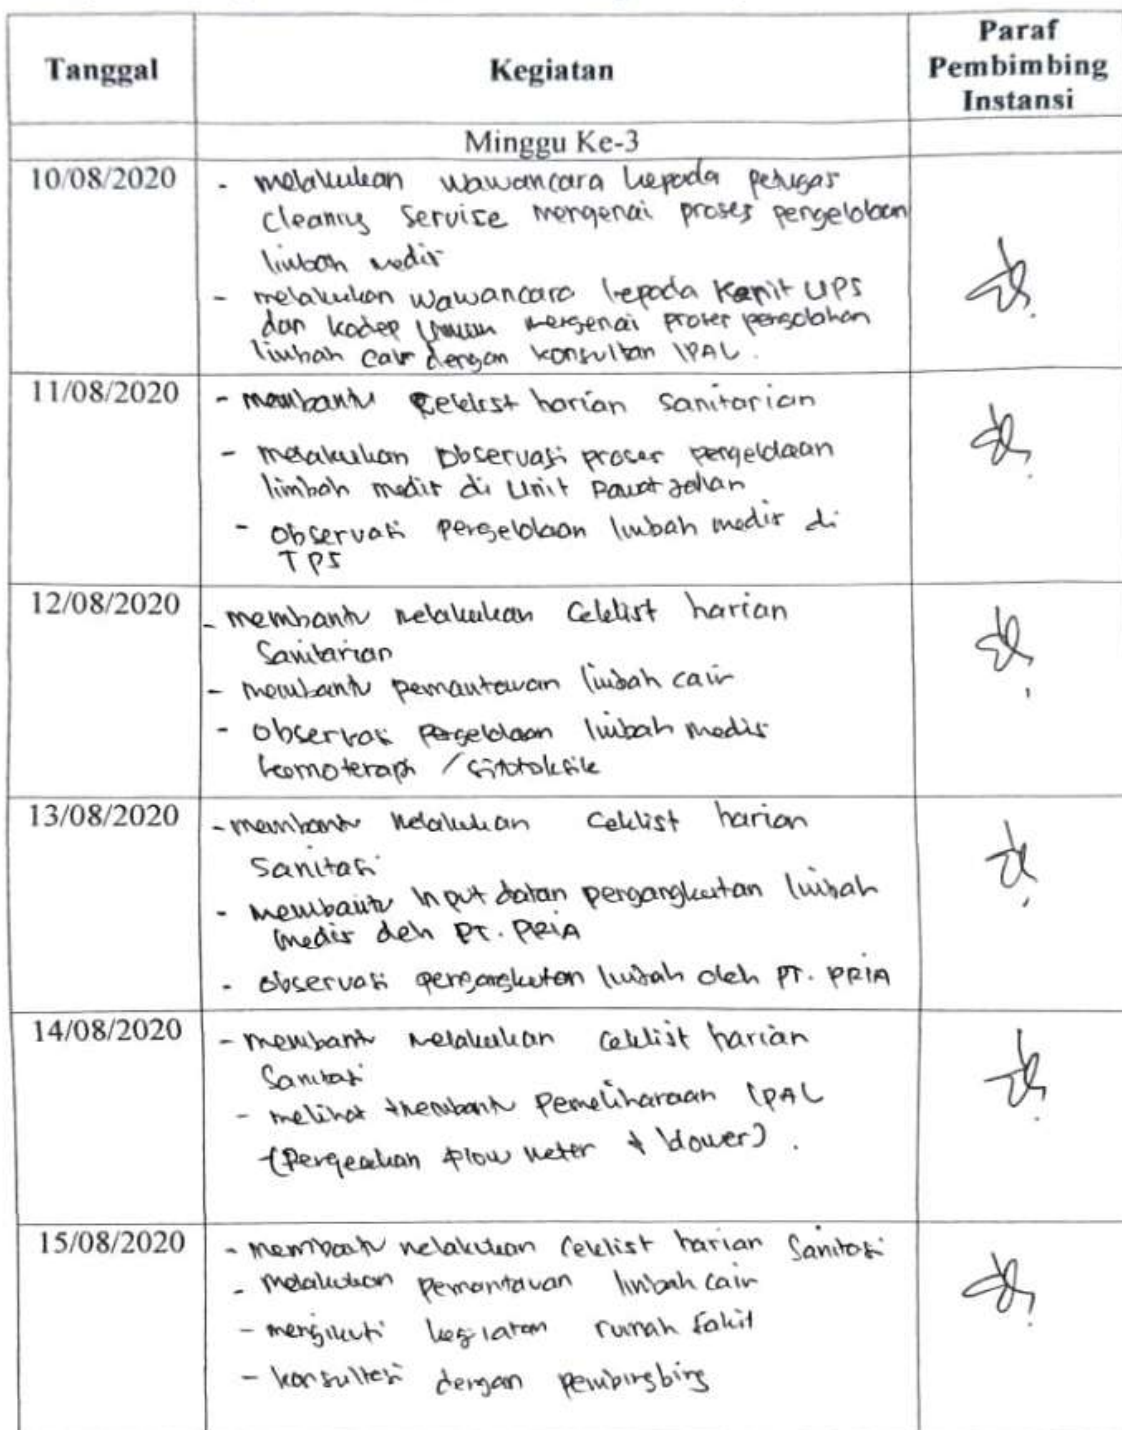 Tanggal
Kegiatan
Paraf
Pembimbing
Instansi
Minggu Ke-3
10/08/2020
- melakukan wawancara kepada petugas
cleaning service mengenai proses pengelolaan
limbah medis
- melakukan wawancara kepada Kanit UPS
dan kadep Umum mengenai proses pengolahan
limbah cair dengan konsultan IPAL.
11/08/2020
- membantu Ceklist harian Sanitarian
- melakukan Observasi proses pengelolaan
limbah medis di Unit Rawat Jalan
- Observasi pengelolaan limbah medis di
TPS
12/08/2020
- membantu melakukan Ceklist harian
Sanitarian
- membantu pemantauan limbah cair
- Observasi pengelolaan limbah medis
kemoterapi / sitotoksik
13/08/2020
- membantu melakukan Ceklist harian
Sanitasi
- membantu Input datan pengangkutan limbah
medis oleh PT. PRIA
- observasi pengangkutan limbah oleh PT. PRIA
14/08/2020
- membantu melakukan Ceklist harian
Sanitasi
- melihat + membantu Pemeliharaan IPAL
(Pengecekan flow meter + blower).
15/08/2020
- membantu melakukan Ceklist harian Sanitasi
- melakukan pemantauan limbah cair
- mengikuti kegiatan rumah sakit
- konsultasi dengan pembingbing